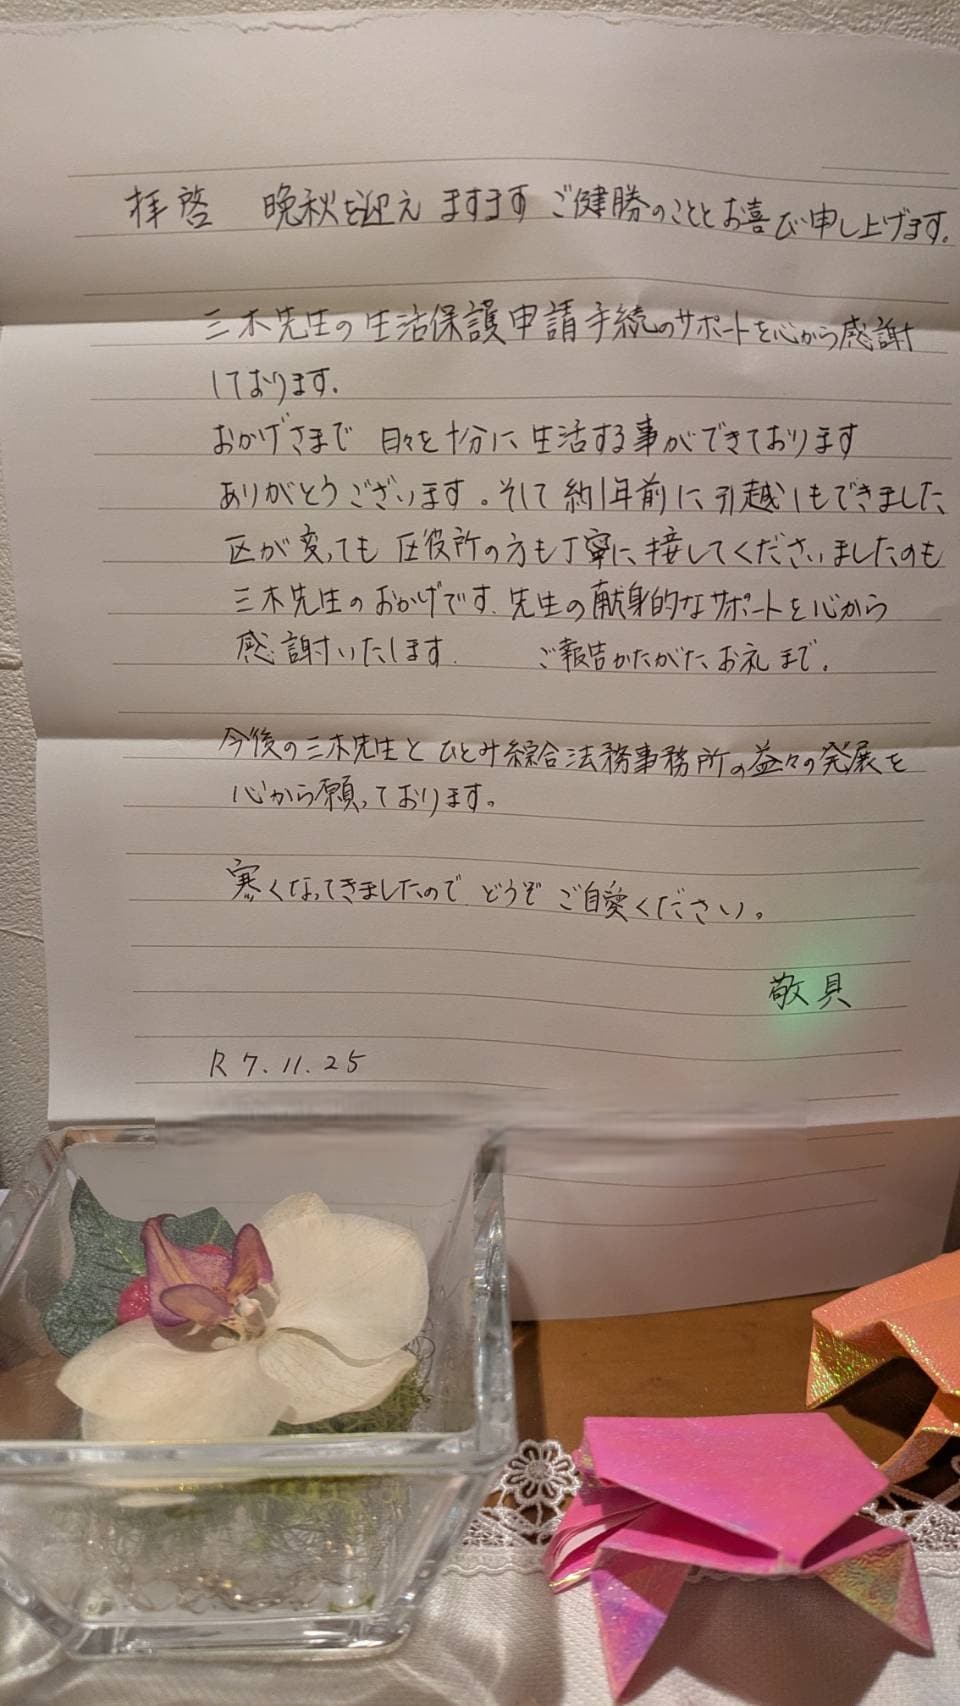 拝啓 晩秋を迎え ますます ご健勝のこととお喜び申し上げます。
三木先生の生活保護申請手続のサポートを心から感謝
しております.
おかげさまで 日々を十分に生活する事ができております
ありがとうございます。そして約1年前に引越しもできました
区が変っても 区役所の方も丁寧に接してくださいましたのも
三木先生のおかげです. 先生の献身的なサポートを心から
感謝いたします. ご報告かたがたお礼まで。
今後の三木先生と ひとみ綜合法務事務所の益々の発展を
心から願っております。
寒くなってきましたので どうぞ ご自愛ください。
敬具
R 7. 11. 25